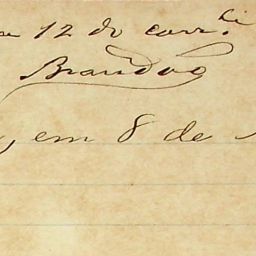 12 do corr.te
Brandão
em 8 de